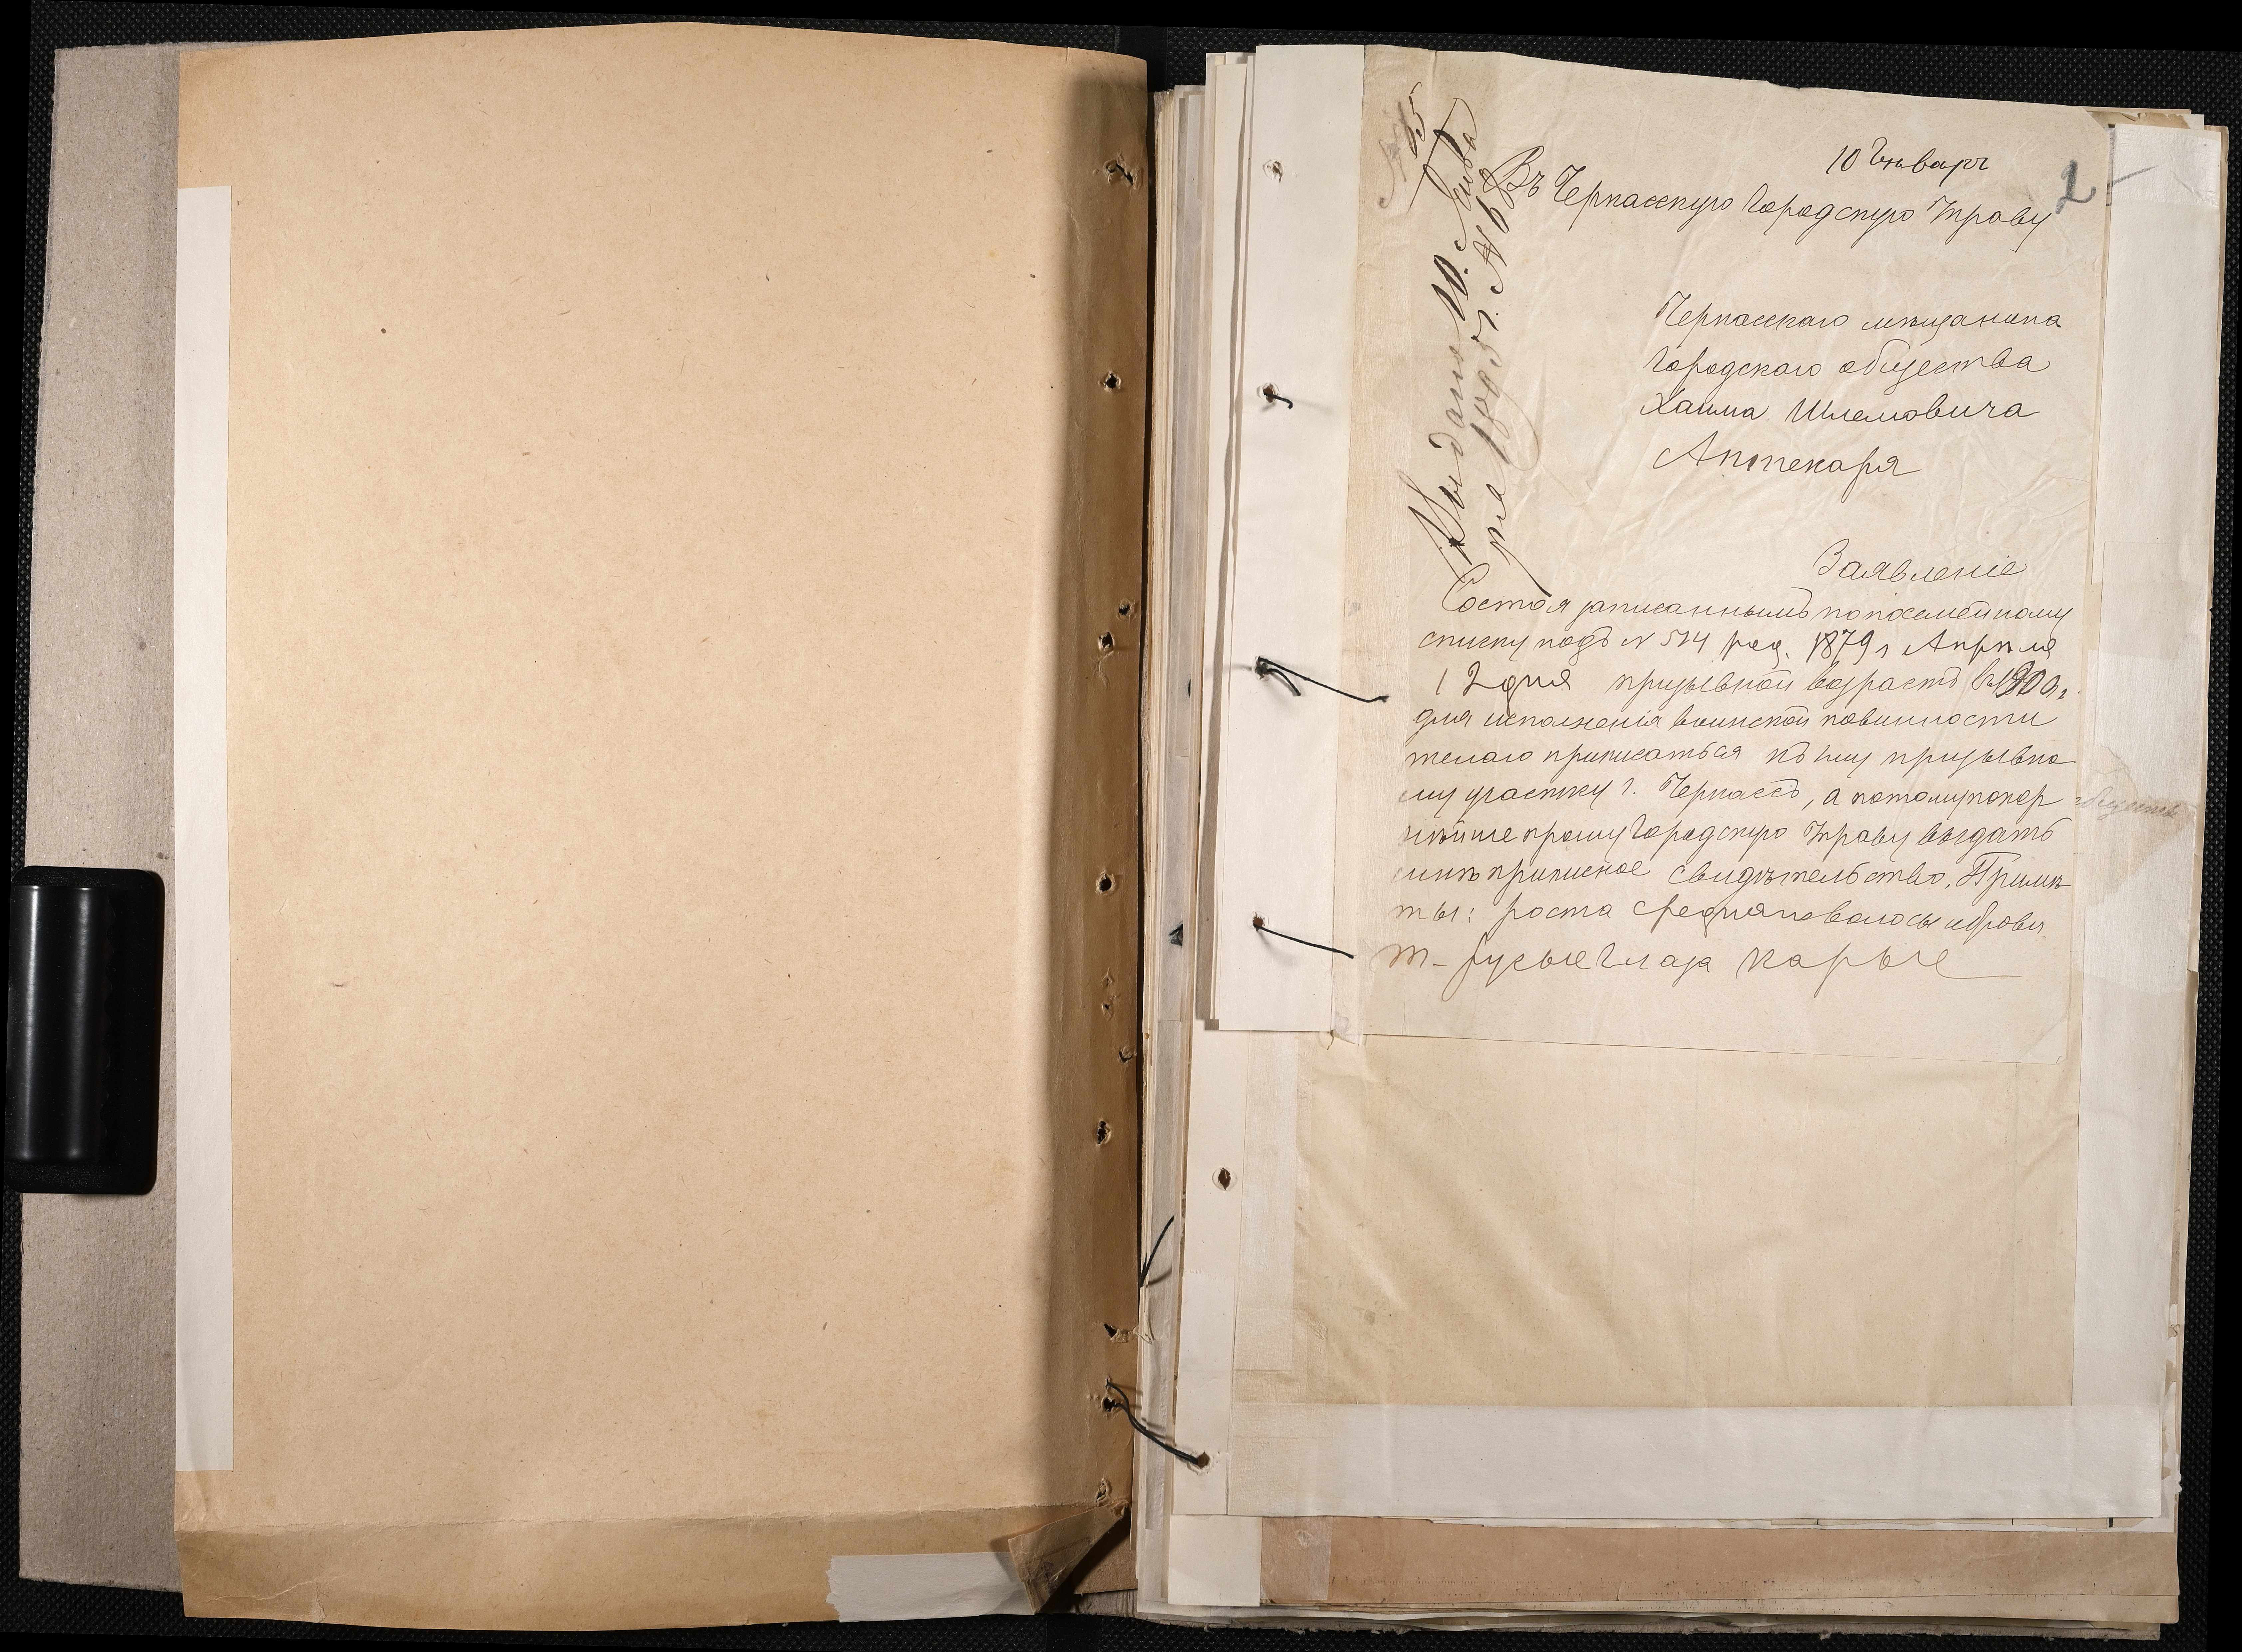 10 Январ
2
Въ Черкасскую Городскую Управу
Черкасскаго мѣщанина
Городскаго общества
Хаима Шлемовича
Аптекаря
Заявленіе
Состоя записаннымъ по посемейному
списку подъ № 514 род. 1879 г Апрѣля
12 дня призывной возрастъ въ 1900 г.
для исполненія воинской повинности
желаю приписаться къ 1му призывно
му участку г. Черкассъ, а потому покор
нѣйше прошу Городскую Управу выдать
мнѣ приписное свидѣтельство. Примѣ
ты: роста средняго волосы и брови
т-русые глаза карые
Выдано 10. Янва
ря 1895 г. № 6